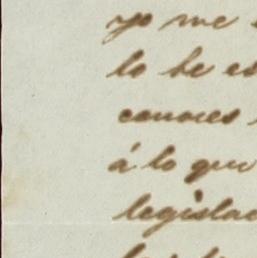 yo me
lo he es
canones
á lo que
legislac